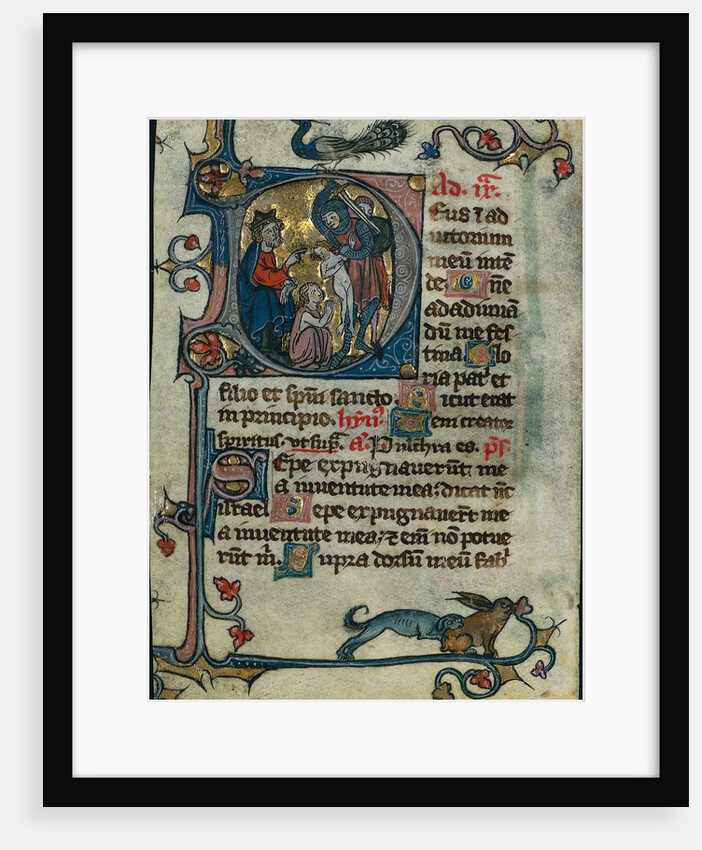 Ad. ix.
Eus ī ad
iutorium
meū intē
de. Dñe
ad adiuuā
dū me fes
tina. Glo
ria pat' et
filio et spūi sancto. Sicut erat
in principio. hȳn' Uem creator
spiritus. ut sup'. a'. Pulchra es. p̄s.
Sepe expugnauerūt me
a iuuentute mea: dicat nc̄
israel. Sepe expugnauer̄t me
a iuuentute mea; ⁊ em̄ nō potue
rūt m̄. Supra dorsū meū fab'